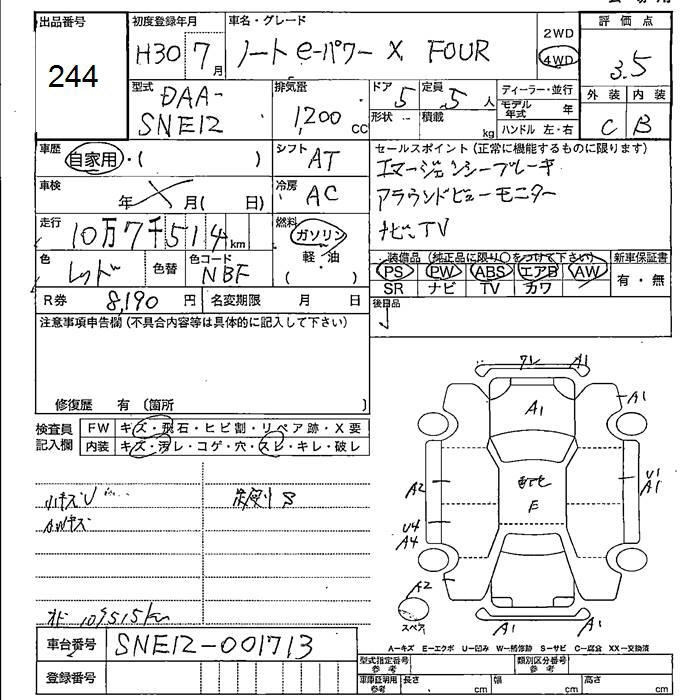 出品番号
244
初度登録年月
H30 7月
車名・グレード
ノート e-パワー X FOUR
2WD
4WD
評価点
3.5
外装 内装
C B
型式
DAA-
SNE12
排気量
1,200 cc
ドア 5
形状
定員 5 人
積載 kg
ディーラー・並行
モデル年式 年
ハンドル 左・右
車歴
自家用・( )
シフト AT
車検
年 月( 日)
冷房 AC
走行
10万7千514 km
燃料
ガソリン
軽・油
( )
色
レッド
色替
色コード
NBF
R券 8,190 円 名変期限 月 日
セールスポイント (正常に機能するものに限ります)
エマージェンシーブレーキ
アラウンドビューモニター
ナビ、TV
装備品 (純正品に限り〇をつけて下さい)
PS PW ABS エアB AW
SR ナビ TV カワ
新車保証書
有・無
後日品
注意事項申告欄 (不具合内容等は具体的に記入して下さい)
修復歴 有 〔箇所 〕
検査員
記入欄
FW キズ・飛石・ヒビ割・リペア跡・X要
内装 キズ・汚レ・コゲ・穴・スレ・キレ・破レ
小キズU
AWキズ
107515km
車台番号 SNE12-001713
登録番号
A1
A1
A1
A2
U1
A1
E
U4
A4
A2
スペア
A1
A1
A-キズ E-エクボ U-凹み W-補修跡 S-サビ C-腐食 XX-交換済
型式指定番号
参考
類別区分番号
参考
車庫証明用
参考
長さ cm 幅 cm 高さ cm